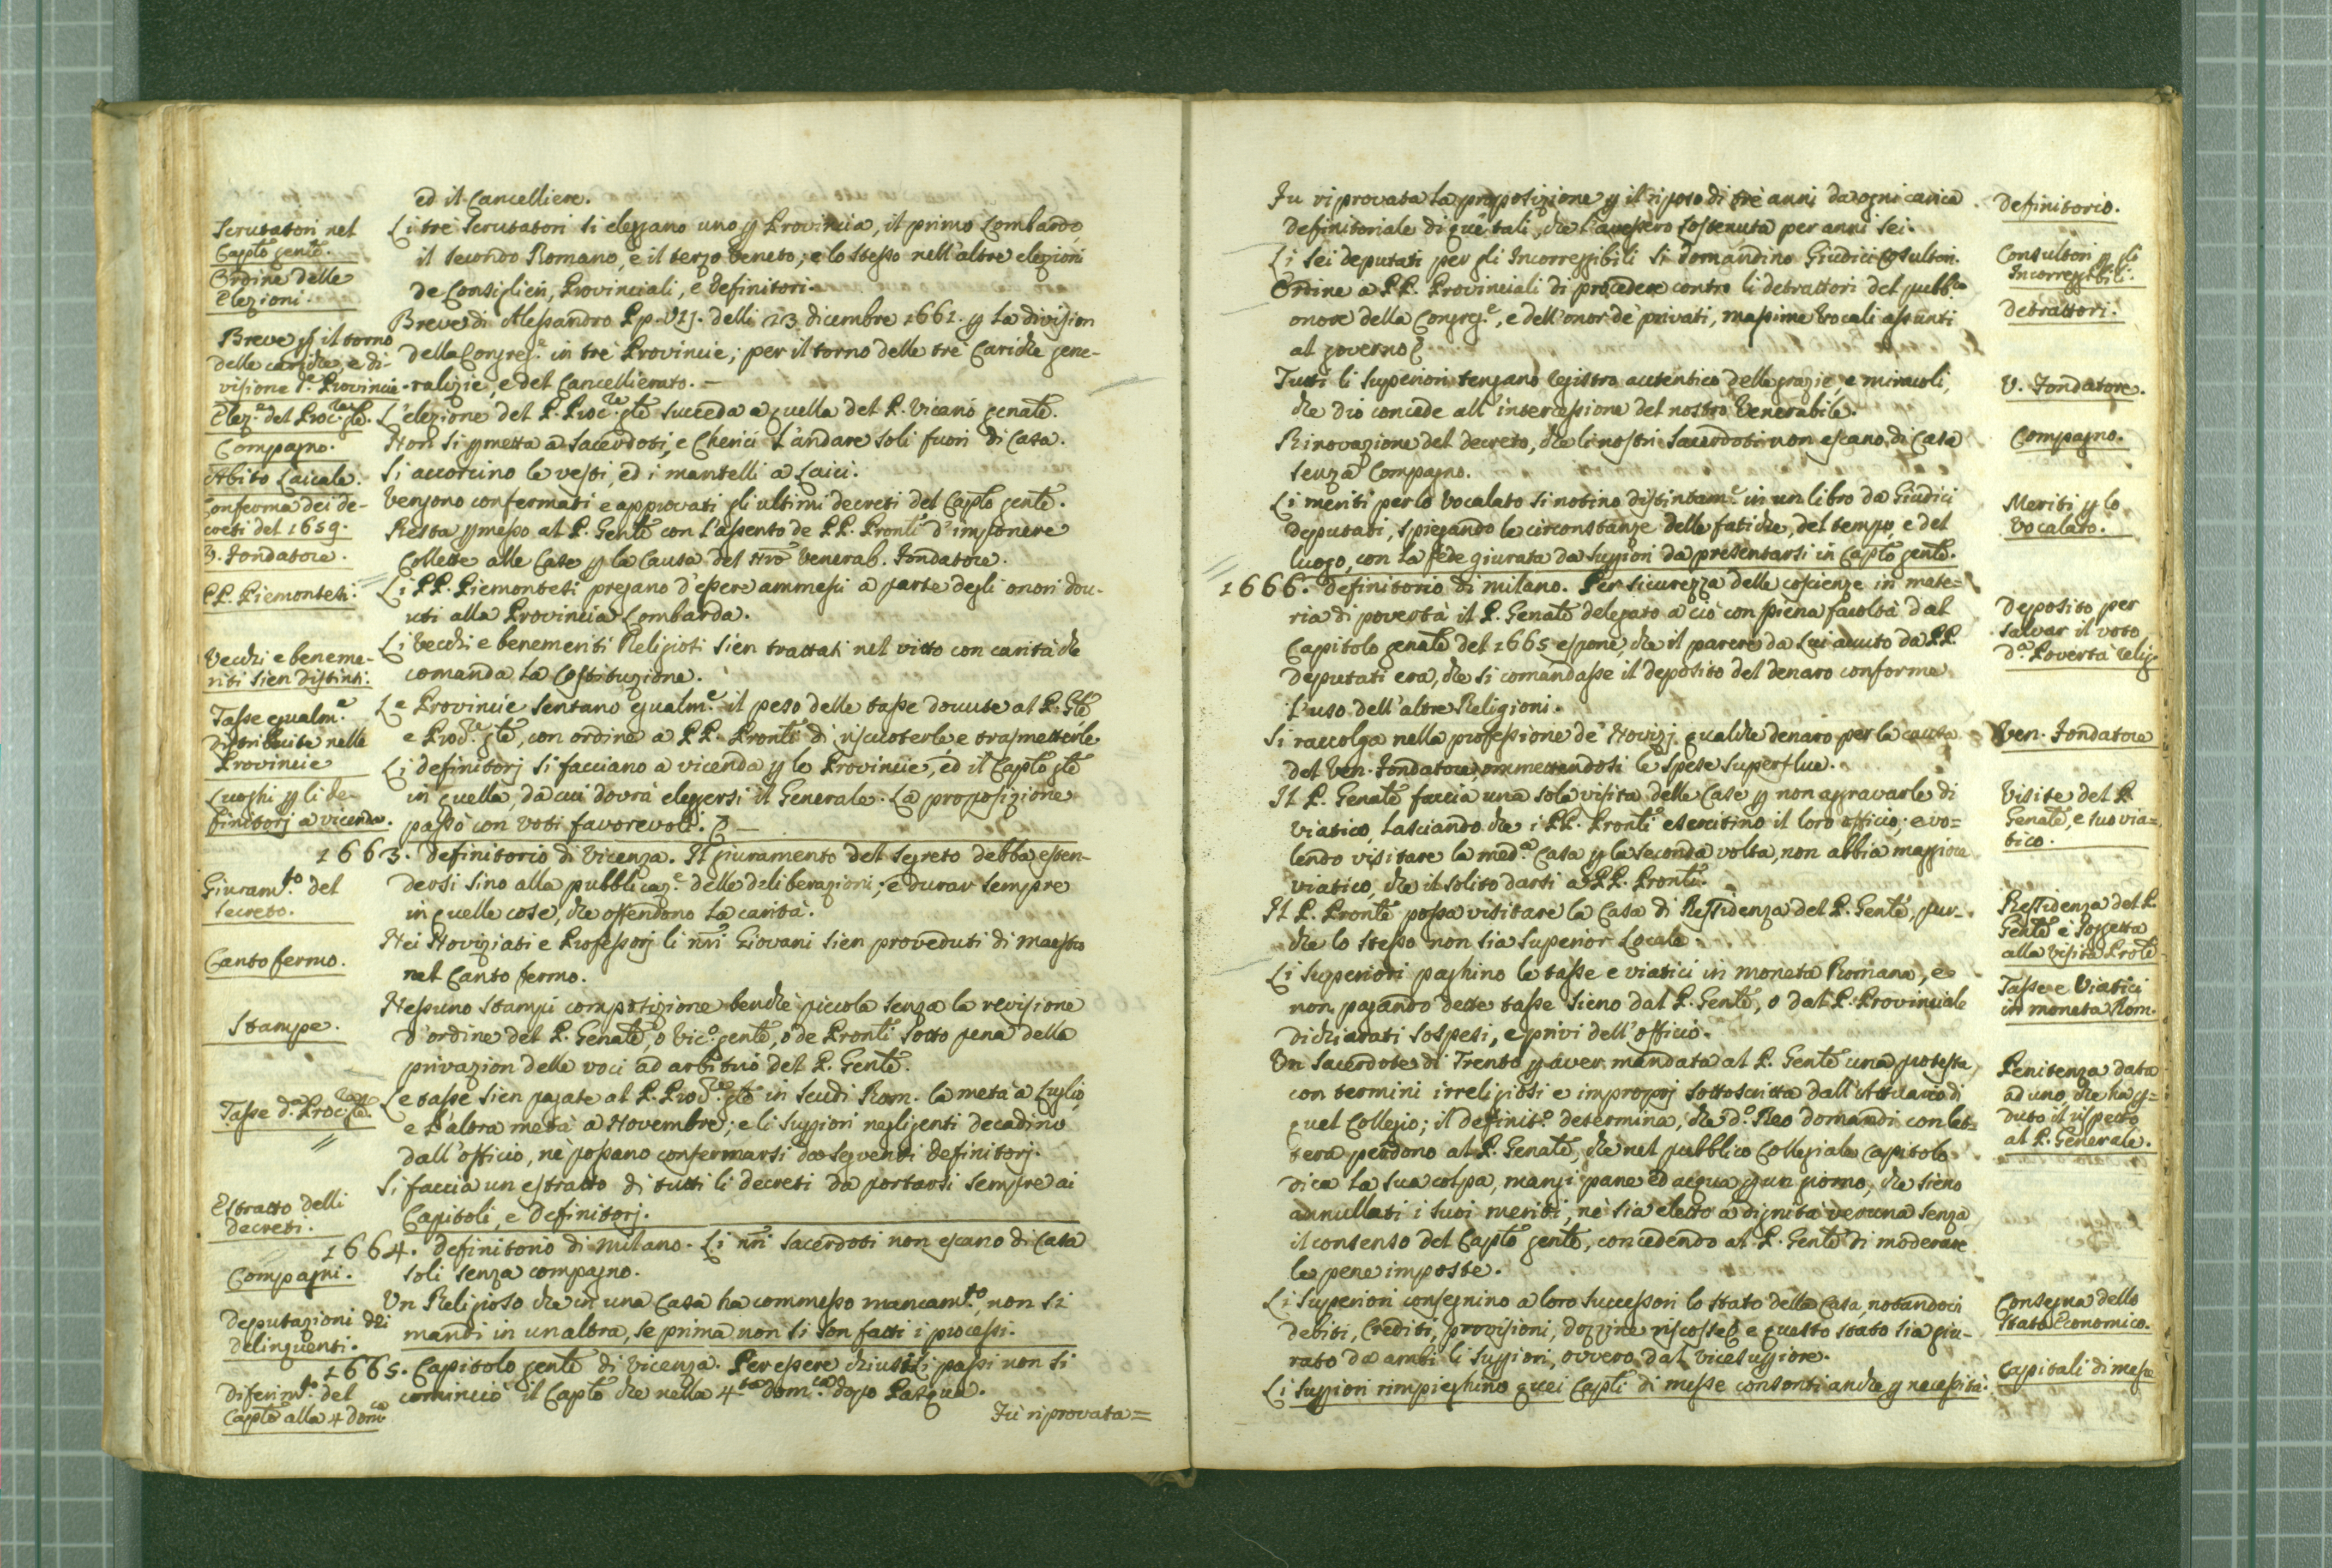 ed il Cancelliere.
Scrutatori nel
Caplo gente.
Li trè Scrutatori si eleggano uno p Provincia, il primo Lombardo,
il secondo Romano, e il terzo Veneto; e lo stesso nell'altre elezioni
Ordine delle
Elezioni.
de Consiglieri, Provinciali, e Definitori.
Breve p il torno
delle cariche, e di-
visione d.e Provincie
Breve di Alessandro P.p. VIJ. delli 23 dicembre 1661. p la division
della Congreg.e in trè Provincie; per il torno delle trè Cariche gene-
ralizie, e del Cancellierato.
Elez.e del Proc.re gle.
L'elezione del P. Proc.re gle succeda a quella del P. Vicario genale.
Compagno.
Non si pmetta a Sacerdoti, e Cherici l'andare soli fuori di Casa.
Abito Laicale.
Si accorcino le vesti, ed i mantelli a Laici.
Conferma dei de-
creti del 1659.
Vengono confermati e approvati gli ultimi decreti del Caplo gente.
V. Fondatore.
Resta pmesso al P. Gente con l'assenso de PP. Pronli d'imponere
Collette alle Case p la Causa del nro Venerab. Fondatore.
PP. Piemontesi.
Li PP. Piemontesi pregano d'essere ammessi a parte degli onori dov-
uti alla Provincia Lombarda.
Vecchi e beneme-
riti sien distinti.
Li Vecchi e benemeriti Religiosi sien trattati nel vitto con carità che
comanda la Costituzione.
Tasse egualm.e
distribuite nelle
Provincie
Le Provincie sentano egualm.e il peso delle tasse dovute al P. Gle
e Proc.re gle, con ordine a PP. Pronli di riscuoterle e trasmetterle
Luoghi p li de-
finitorj a vicenda.
Li definitorj si facciano a vicenda p le Provincie, ed il Caplo gle
in quella, da cui dovrà eleggersi il Generale. La proposizione
passò con voti favorevoli.
1663. Definitorio di Vicenza. Il giuramento del segreto debba esten-
Giuram.to del
secreto.
dersi sino alla pubblicaz.e delle deliberazioni; e durar sempre
in quelle cose, che offendono la carità.
Canto fermo.
Nei Noviziati e Professorj li nri Giovani sien proveduti di maestro
nel Canto fermo.
Stampe.
Nessuno stampi composizione benchè piccola senza la revisione
d'ordine del P. Genale, o Vic.o gente, o de Pronli sotto pena della
privazion delle voci ad arbitrio del P. Gente.
Tasse d.e Proc.re gle.
Le tasse sien pagate al P. Proc.re gle in Scudi Rom. la metà a Luglio,
e l'altra metà a Novembre; e li Suppiori negligenti decadino
dall'officio, nè possano confermarsi da seguenti Definitorj.
Estratto delli
decreti.
Si faccia un estratto di tutti li decreti da portarsi sempre ai
Capitoli, e Definitorj.
1664. Definitorio di Milano. Li nri Sacerdoti non escano di Casa
Compagni.
soli senza compagno.
Deputazioni dei
delinquenti.
Un Religioso che in una Casa ha commesso mancam.to, non si
mandi in un altra, se prima non si son fatti i processi.
1665. Capitolo gente di Vicenza. Per essere chiusi li passi non si
Diferim.to del
Caplo alla 4 dom.ca
cominciò il Caplo che nella 4.ta dom.ca dopo Pasqua.
Fù riprovata=
Fu riprovata la proposizione p il riposo di trè anni da ogni carica
Definitorio.
Definitoriale di què tali, che l'avessero sostenuta per anni sei.
Consultori p gli
Incorreggibili.
Li sei deputati per gli Incorreggibili si domandino Giudici Cosultori.
Detrattori.
Ordine a PP. Provinciali di procedere contro li detrattori del pubb.co
onore della Congreg.e, e dell'onor de privati, massime Vocali assunti
al governo
V. Fondatore.
Tutti li Superiori tengano registro autentico delle grazie, e miracoli,
che dio concede all'intercessione del nostro Venerabile.
Compagno.
Rinovazione del decreto, che li nostri Sacerdoti non escano di Casa
senza Compagno.
Meriti p lo
Vocalato.
Li meriti per lo Vocalato si notino distintam.e in un libro da Giudici
deputati, spiegando le circonstanze delle fatiche, del tempo, e del
luogo, con la fede giurata da Suppiori da presentarsi in Caplo gente.
1666. Definitorio di Milano. Per sicurezza delle coscienze in mate=
Deposito per
salvar il voto
d.a Povertà relig.
ria di povertà il P. Genale delegato a ciò con piena facoltà dal
Capitolo genale del 1665 espone, che il parere da Lui avuto da PP.
Deputati era, che si comandasse il deposito del denaro conforme
l'uso dell'altre Religioni.
Ven. Fondatore
Si raccolga nella professione de' Novizj qualche denaro per la causa
del Ven. Fondatore, ommettendosi le spese superflue.
Visite del P.
Genale, e suo via=
tico.
Il P. Genale faccia una sola visita delle Case p non aggravarle di
viatico, lasciando che i PP. Pronli esercitino il loro officio; e vo=
lendo visitare la med.a Casa p la seconda volta, non abbia maggior
viatico, che il solito darsi a PP. Pronli.
Ressidenza del P.
Gente è soggetta
alla visita Prole
Il P. Pronle possa visitare la Casa di Ressidenza del P. Gente, pur-
che lo stesso non sia Superior Locale.
Tasse e Viatici
in moneta Rom.
Li Superiori paghino le tasse e viatici in moneta Romana, e
non pagando dette tasse sieno dal P. Gente, o dal P. Provinciale
dichiarati sospesi, e privi dell'officio.
Penitenza data
ad uno, che ha p=
duto il rispetto
al P. Generale.
Un Sacerdote di Trento p aver mandata al P. Gente una protesta
con termini irreligiosi e improprj sottoscritta dall'Attuario di
quel Collegio; il definit.o determina, che d.o Reo domandi con let=
tera perdono al P. Genale, che nel pubblico Collegiale Capitolo
dica la sua colpa, mangi pane ed acqua p un giorno, che sieno
annullati i suoi meriti, nè sia eletto a dignità veruna senza
il consenso del Caplo gente, concedendo al P. Gente di moderare
le pene imposte.
Consegna dello
Stato Economico.
Li Superiori consegnino a loro Successori lo stato della Casa notandoci
debiti, Crediti, provisioni, dozzine riscosse, e questo stato sia giu-
rato da ambi li Suppiori, ovvero dal Vicesuppiore.
Capitali di messe
Li Suppiori rimpieghino quei Capli di messe consonti anche p necessità.